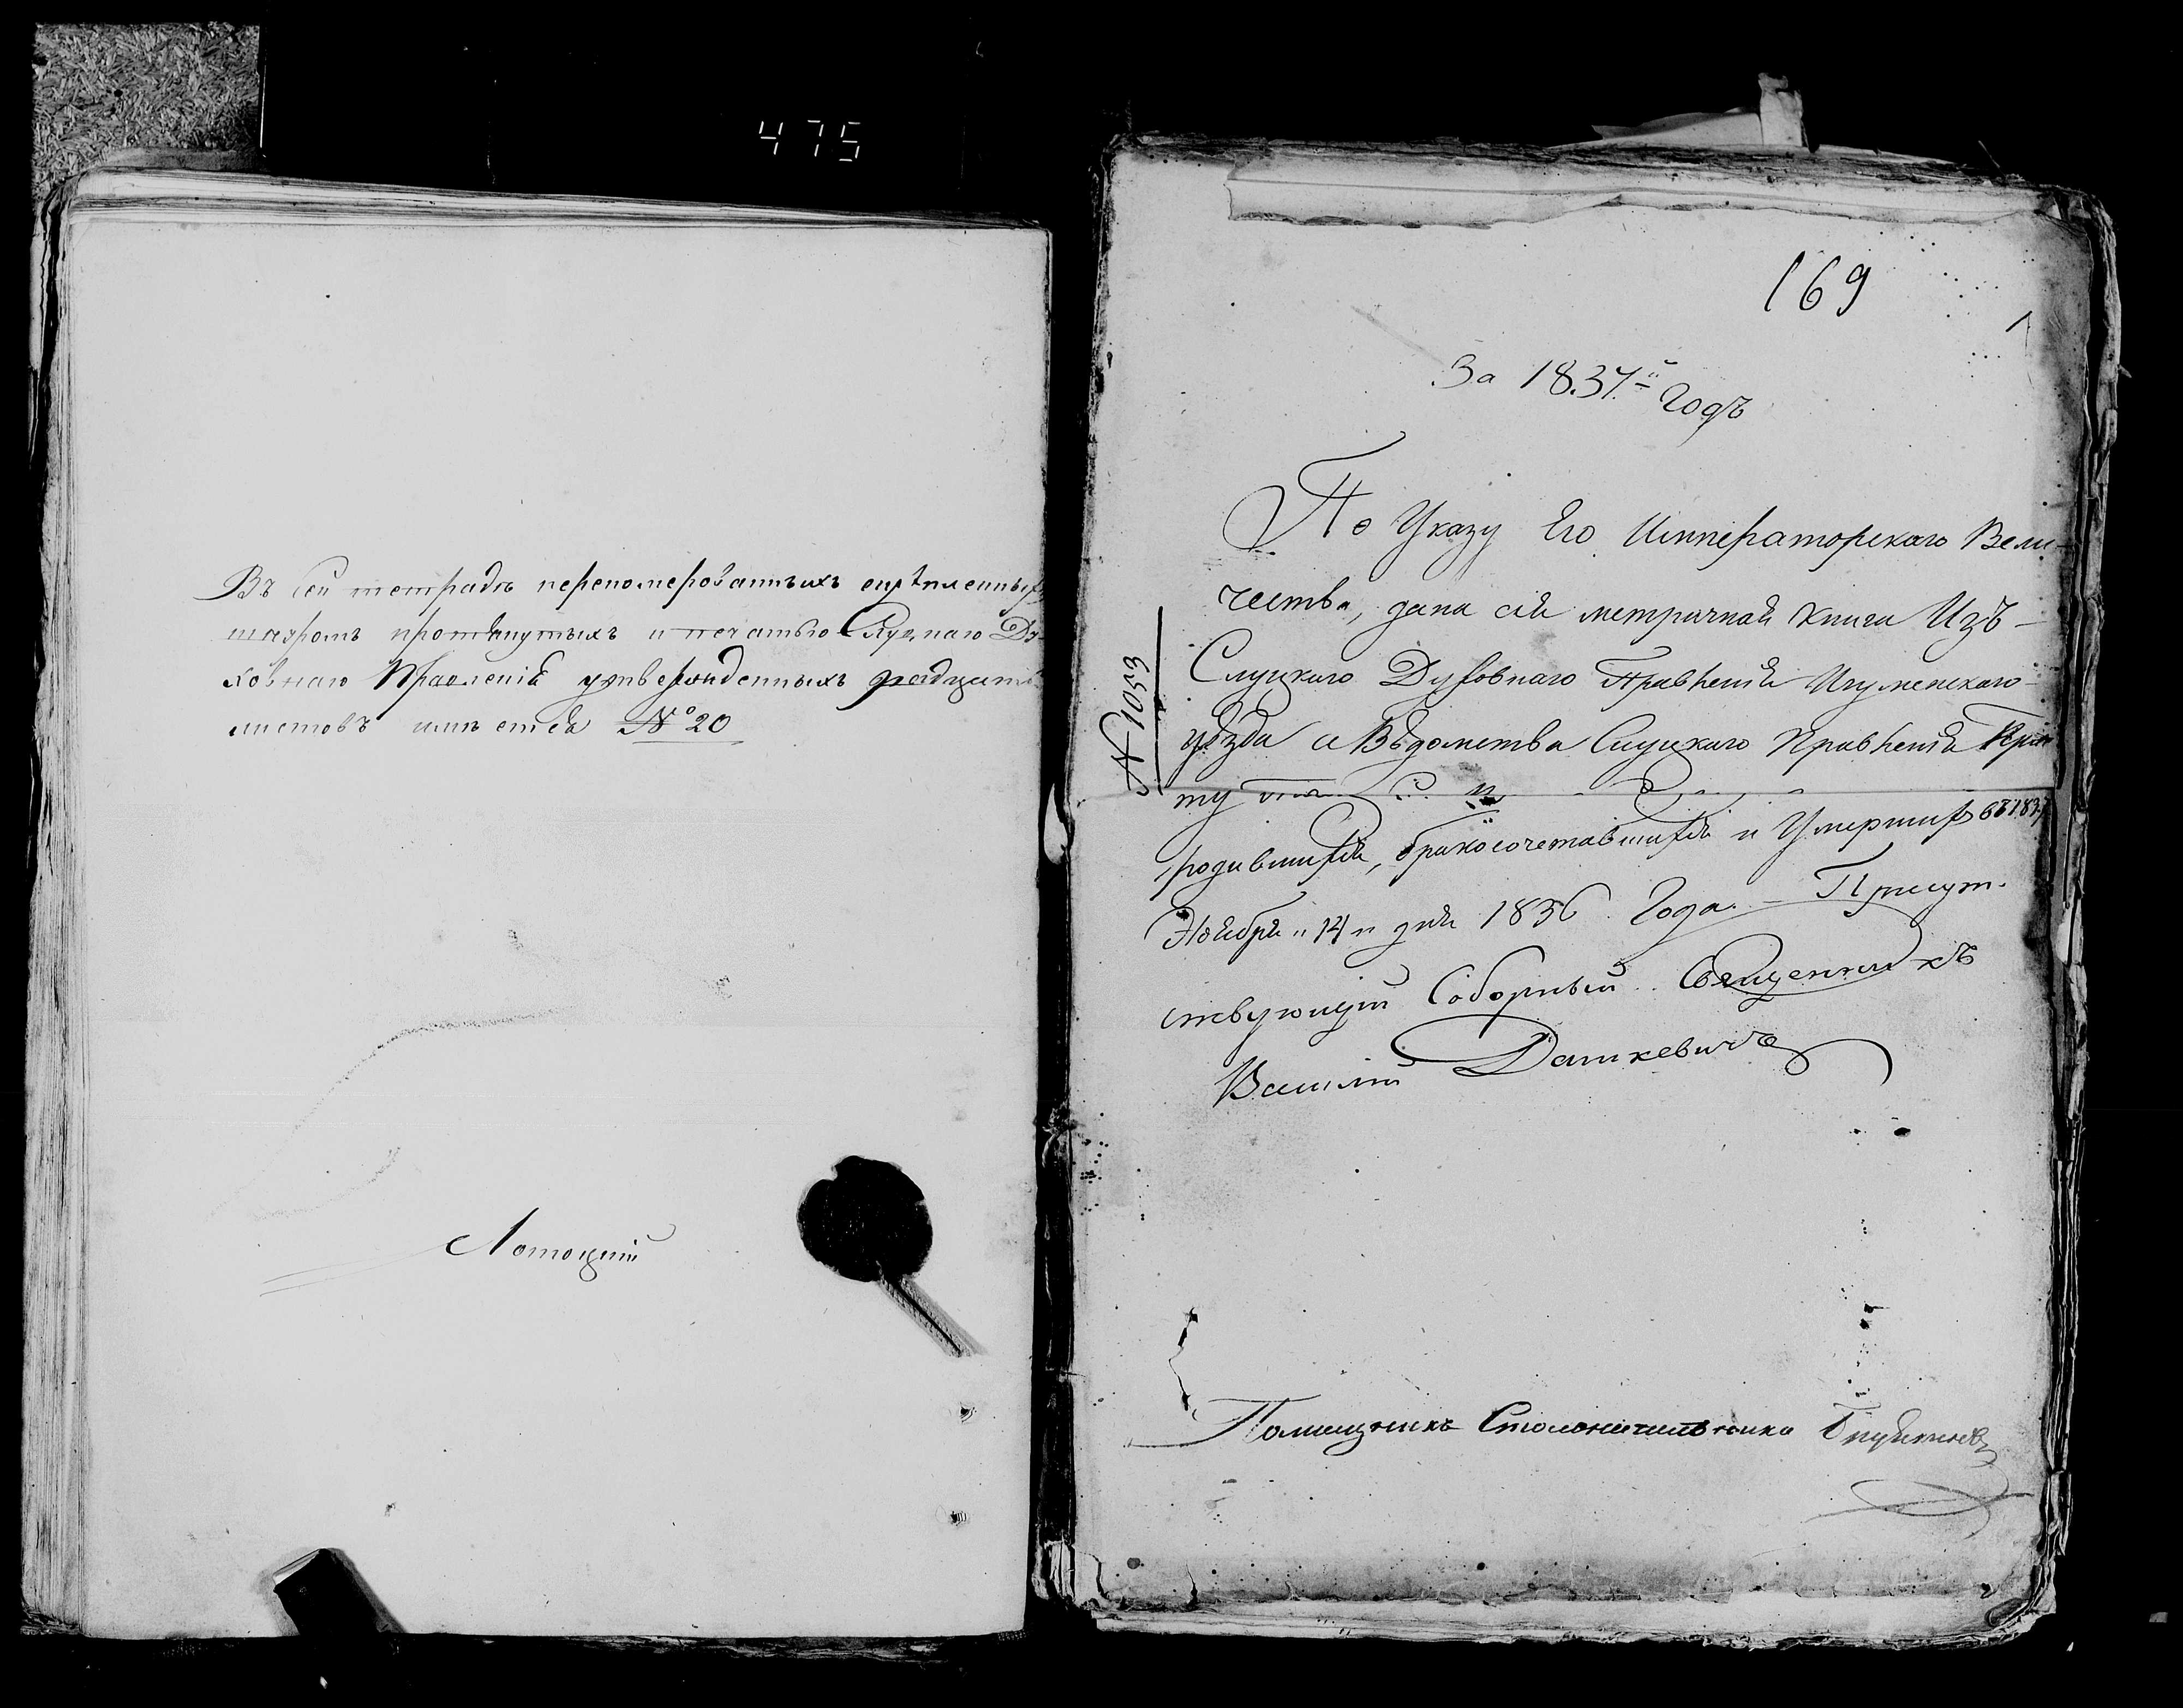 475
Въ сей тетрадѣ перепомерованныхъ скрѣпленных
шнуромъ протянутыхъ и печатью Слуцкаго Ду-
ховнаго Правленія утвержденныхъ двадцать
листовъ имѣется № 20
Лотоцкій
169
1
За 1837й Годъ
По Указу Его Императорскаго Вели-
чества, дана сія метричная книга Изъ
Слуцкаго Духовнаго Правленія Игуменскаго
уѣзда а Вѣдомства Слуцкаго Правленія
№ 1053
родившихся, бракосочетавшихся и Умершихъ въ 1837
Ноября „14„ дня 1836 Года. – Присут-
ствующій Соборный Священникъ
Василій Дашкевичъ
Помощникъ Столоначальника